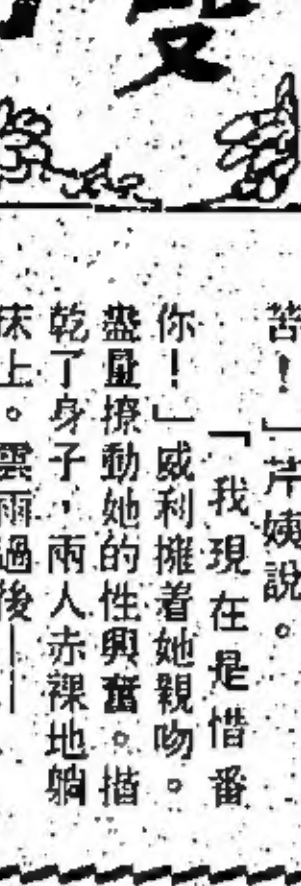 苦！」芹姨說。
「我現在是惜番
你！」威利擁着她親吻。
盡量撩動她的性興奮。揩
乾了身子，兩人赤裸地躺
床上。雲雨過後——